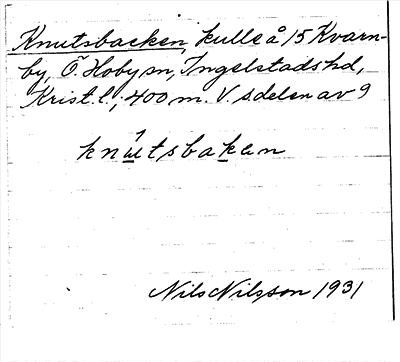 Knutsbacken, kulle å 15 Kvarn-
by, Ö. Hoby sn, Ingelstads hd,
Krist. l.; 400 m. V. s. delen av 9
knutsbaken
Nils Nilsson 1931